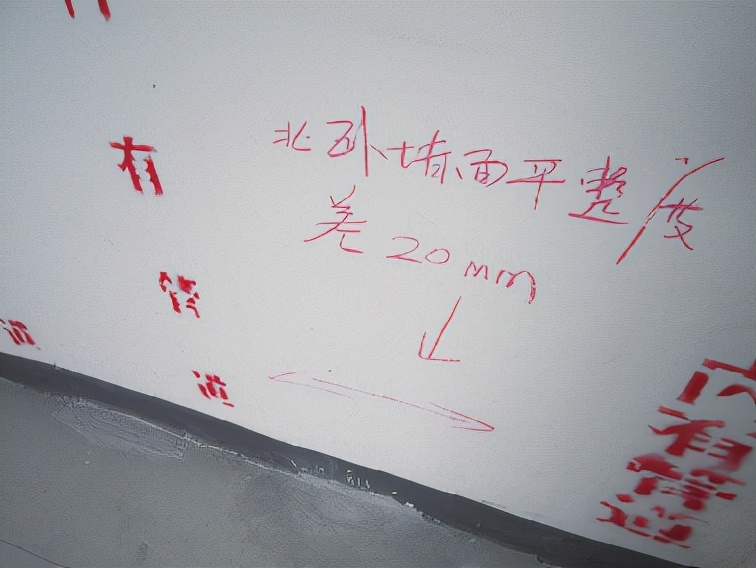 北卧墙面平整度
差20mm
有
管
道
道
内
有
管
道